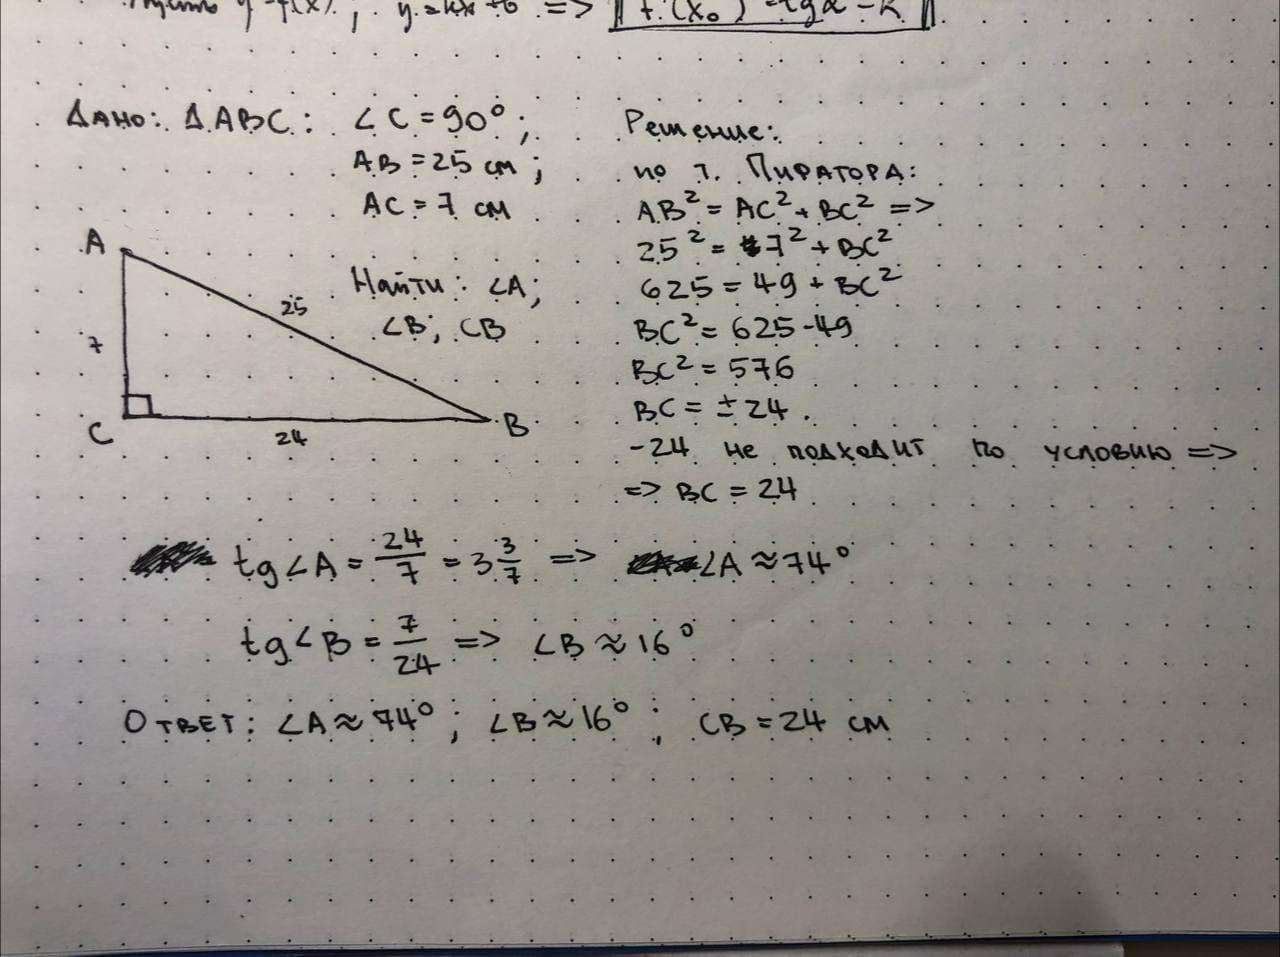 y = f(x); y = kx + b => f'(x₀) = tgα = k
Дано: ΔABC: ∠C = 90°;
AB = 25 см;
AC = 7 см
Найти: ∠A;
∠B; CB
A
25
7
C
24
B
Решение:
по т. Пифагора:
AB² = AC² + BC² =>
25² = 7² + BC²
625 = 49 + BC²
BC² = 625 - 49
BC² = 576
BC = ± 24.
-24 не подходит по условию =>
=> BC = 24
tg∠A = 24/7 = 3 3/7 => ∠A ≈ 74°
tg∠B = 7/24 => ∠B ≈ 16°
Ответ: ∠A ≈ 74°; ∠B ≈ 16°; CB = 24 см